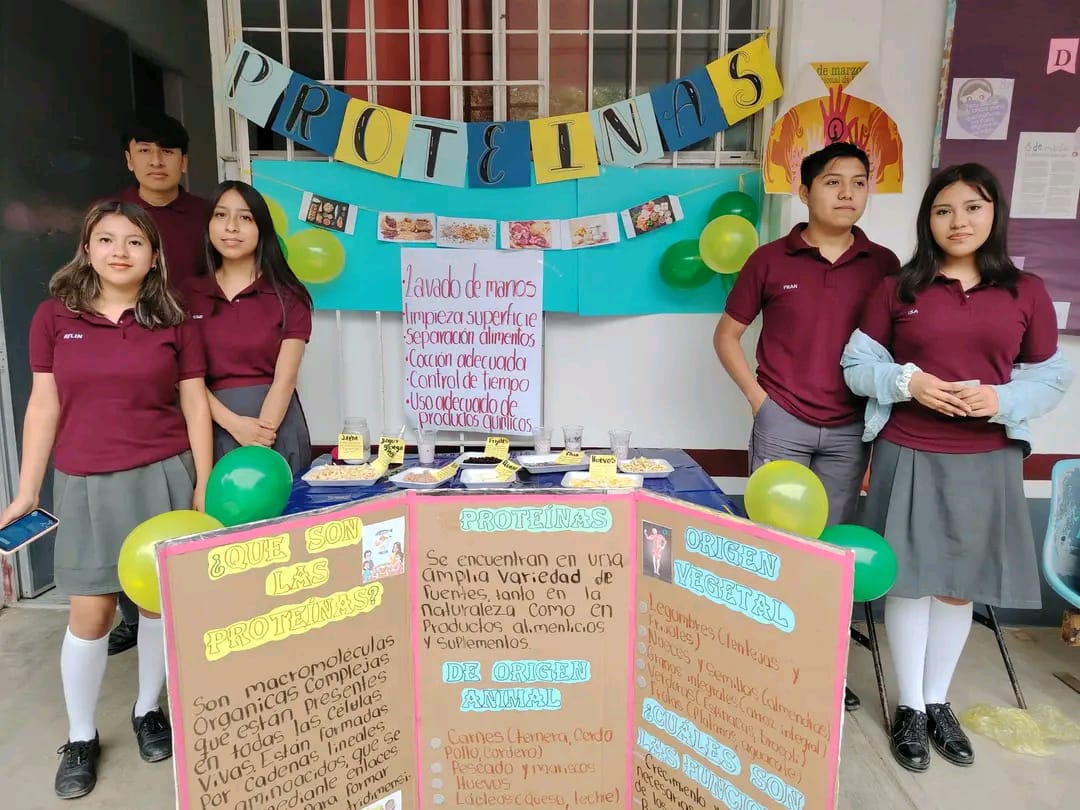 PROTEINAS
de marzo
D
8 de marzo
•Lavado de manos
•limpieza superficie
•Separación alimentos
•Cocción adecuada
•Control de tiempo
•Uso adecuado de
productos químicos
FRAN
ISA
Frijoles
Huevos
¿QUE SON
LAS
PROTEÍNAS?
Son macromoléculas
organicas complejas
que estan presentes
en todas las células
vivas. Están formadas
por cadenas lineales
aminoácidos, que se
mediante enlaces
para formar
tridimensi-
PROTEÍNAS
Se encuentran en una
amplia variedad de
fuentes, tanto en la
naturaleza como en
Productos alimenticios
y suplementos.
DE ORIGEN
ANIMAL
Carnes (Ternera, Cerdo
Pollo, Cordero)
Pescado y mariscos
Huevos
Lácteos (queso, leche)
ORIGEN
VEGETAL
Legumbres (lentejas y
frijoles)
Nueces y Semillas (almendras)
Granos integrales (arroz integral)
Verduras (Espinacas, brocoli)
Frutas (Platanos, aguacate)
¿CUÁLES SON
LAS FUNCION
Crecimiento y